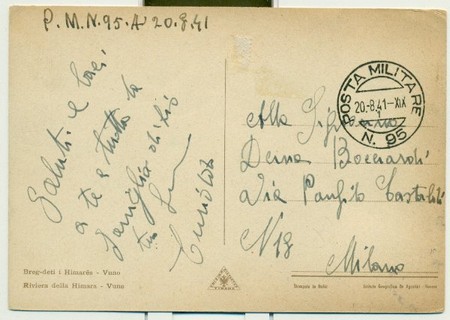 P. M. N. 95. A 20.8.41
POSTA MILITARE
20.-8.41-XIX
N. 95
Saluti e baci
a te a tutta la
famiglia di zio
tuo
Alla Signorina
Derna Bocciardi
Via Panfilo Castaldi
N 18
Milano
Breg-deti i Himarës - Vuno
Riviera della Himara - Vuno
Stampato in Italia